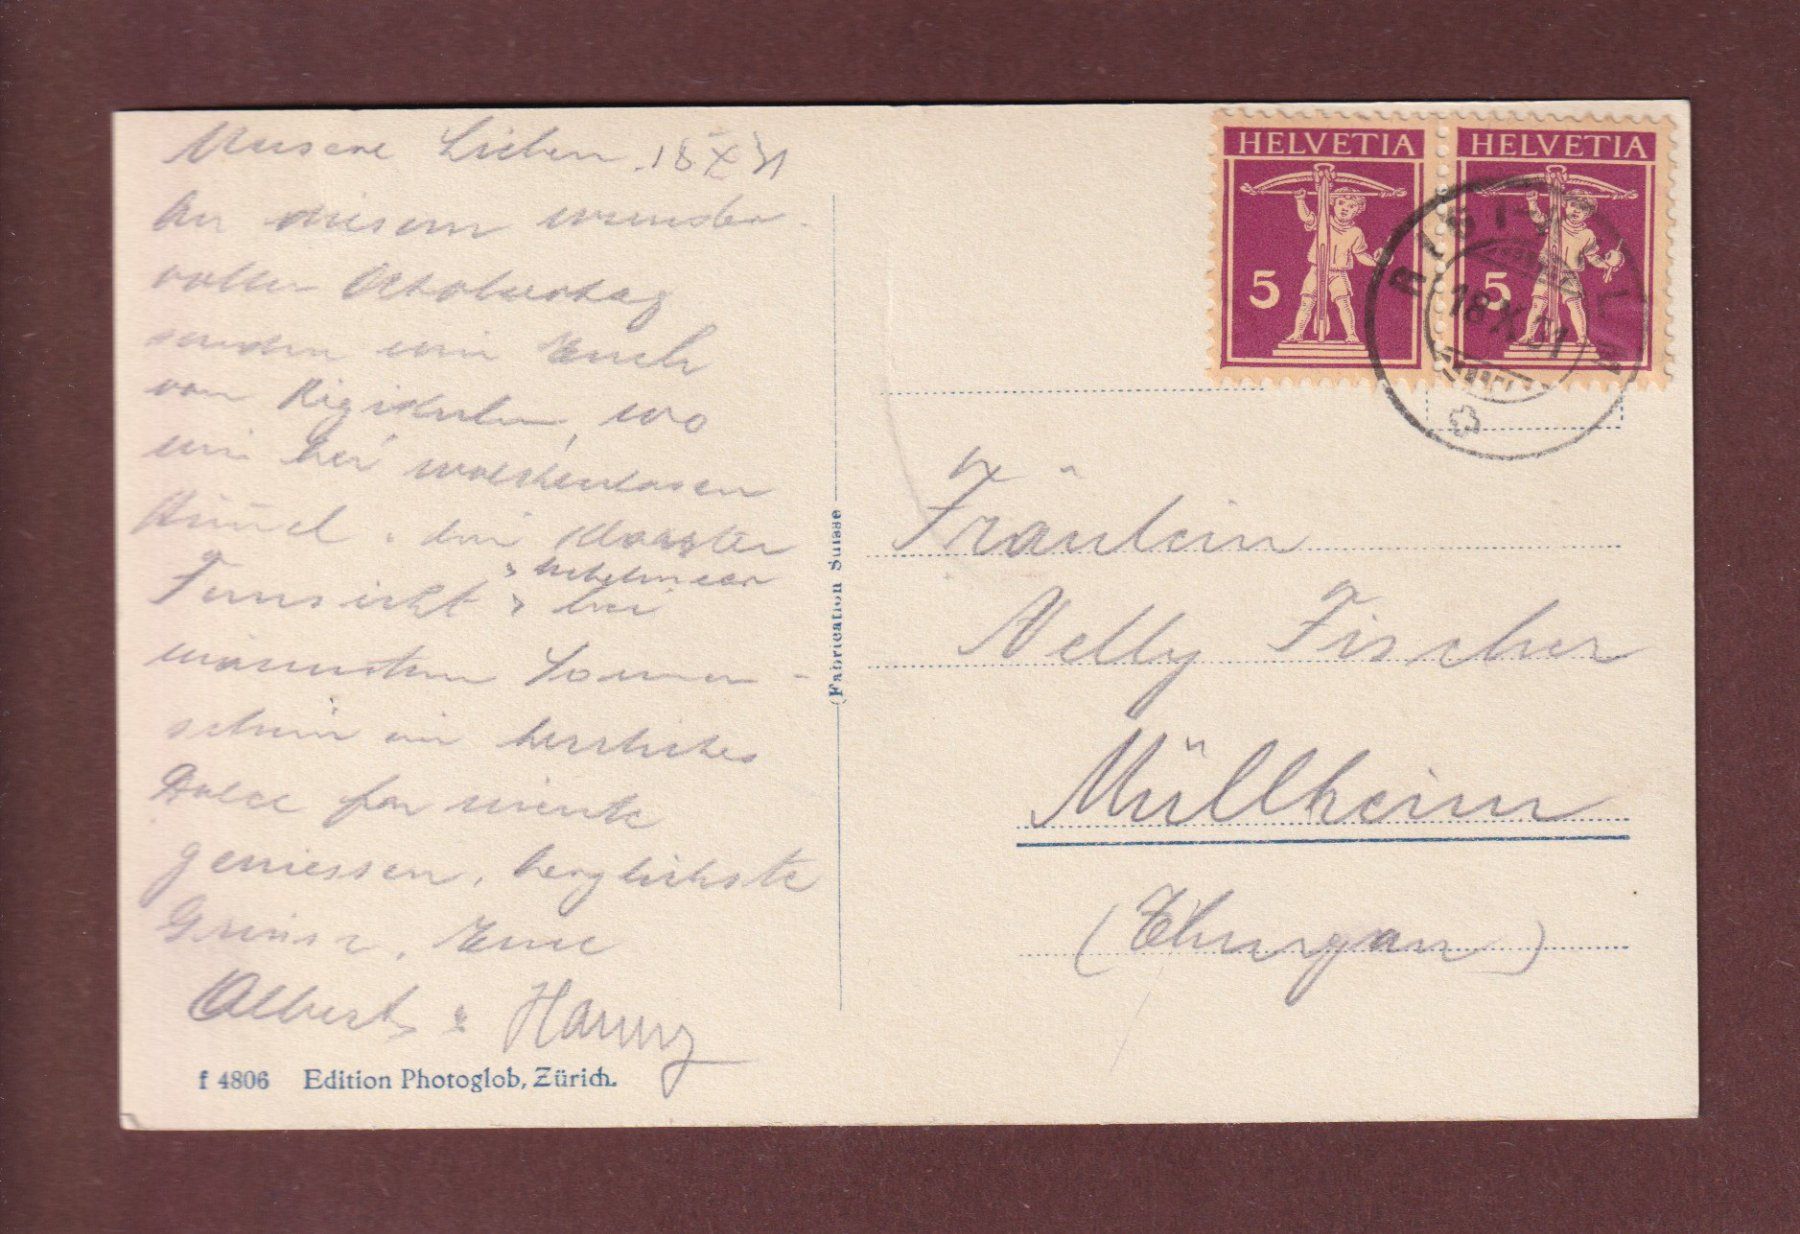 Unsere Lieben 18 X 31
An diesem wunder-
vollen Oktobertag
senden wir Euch
von Rigikulm, wo
wir bei wolkenlosem
Himmel, bei klarster
Fernsicht, Nebelmeer
bei
wärmstem Sonnen-
schein ein herrliches
Dolce far niente
geniessen. herzlichste
Grüsse, Eure
Albert & Hanny
f 4806 Edition Photoglob, Zürich.
(Fabrication Suisse
HELVETIA
5
HELVETIA
5
18.X.31
Fräulein
Nelly Fischer
Müllheim
(Thurgau)